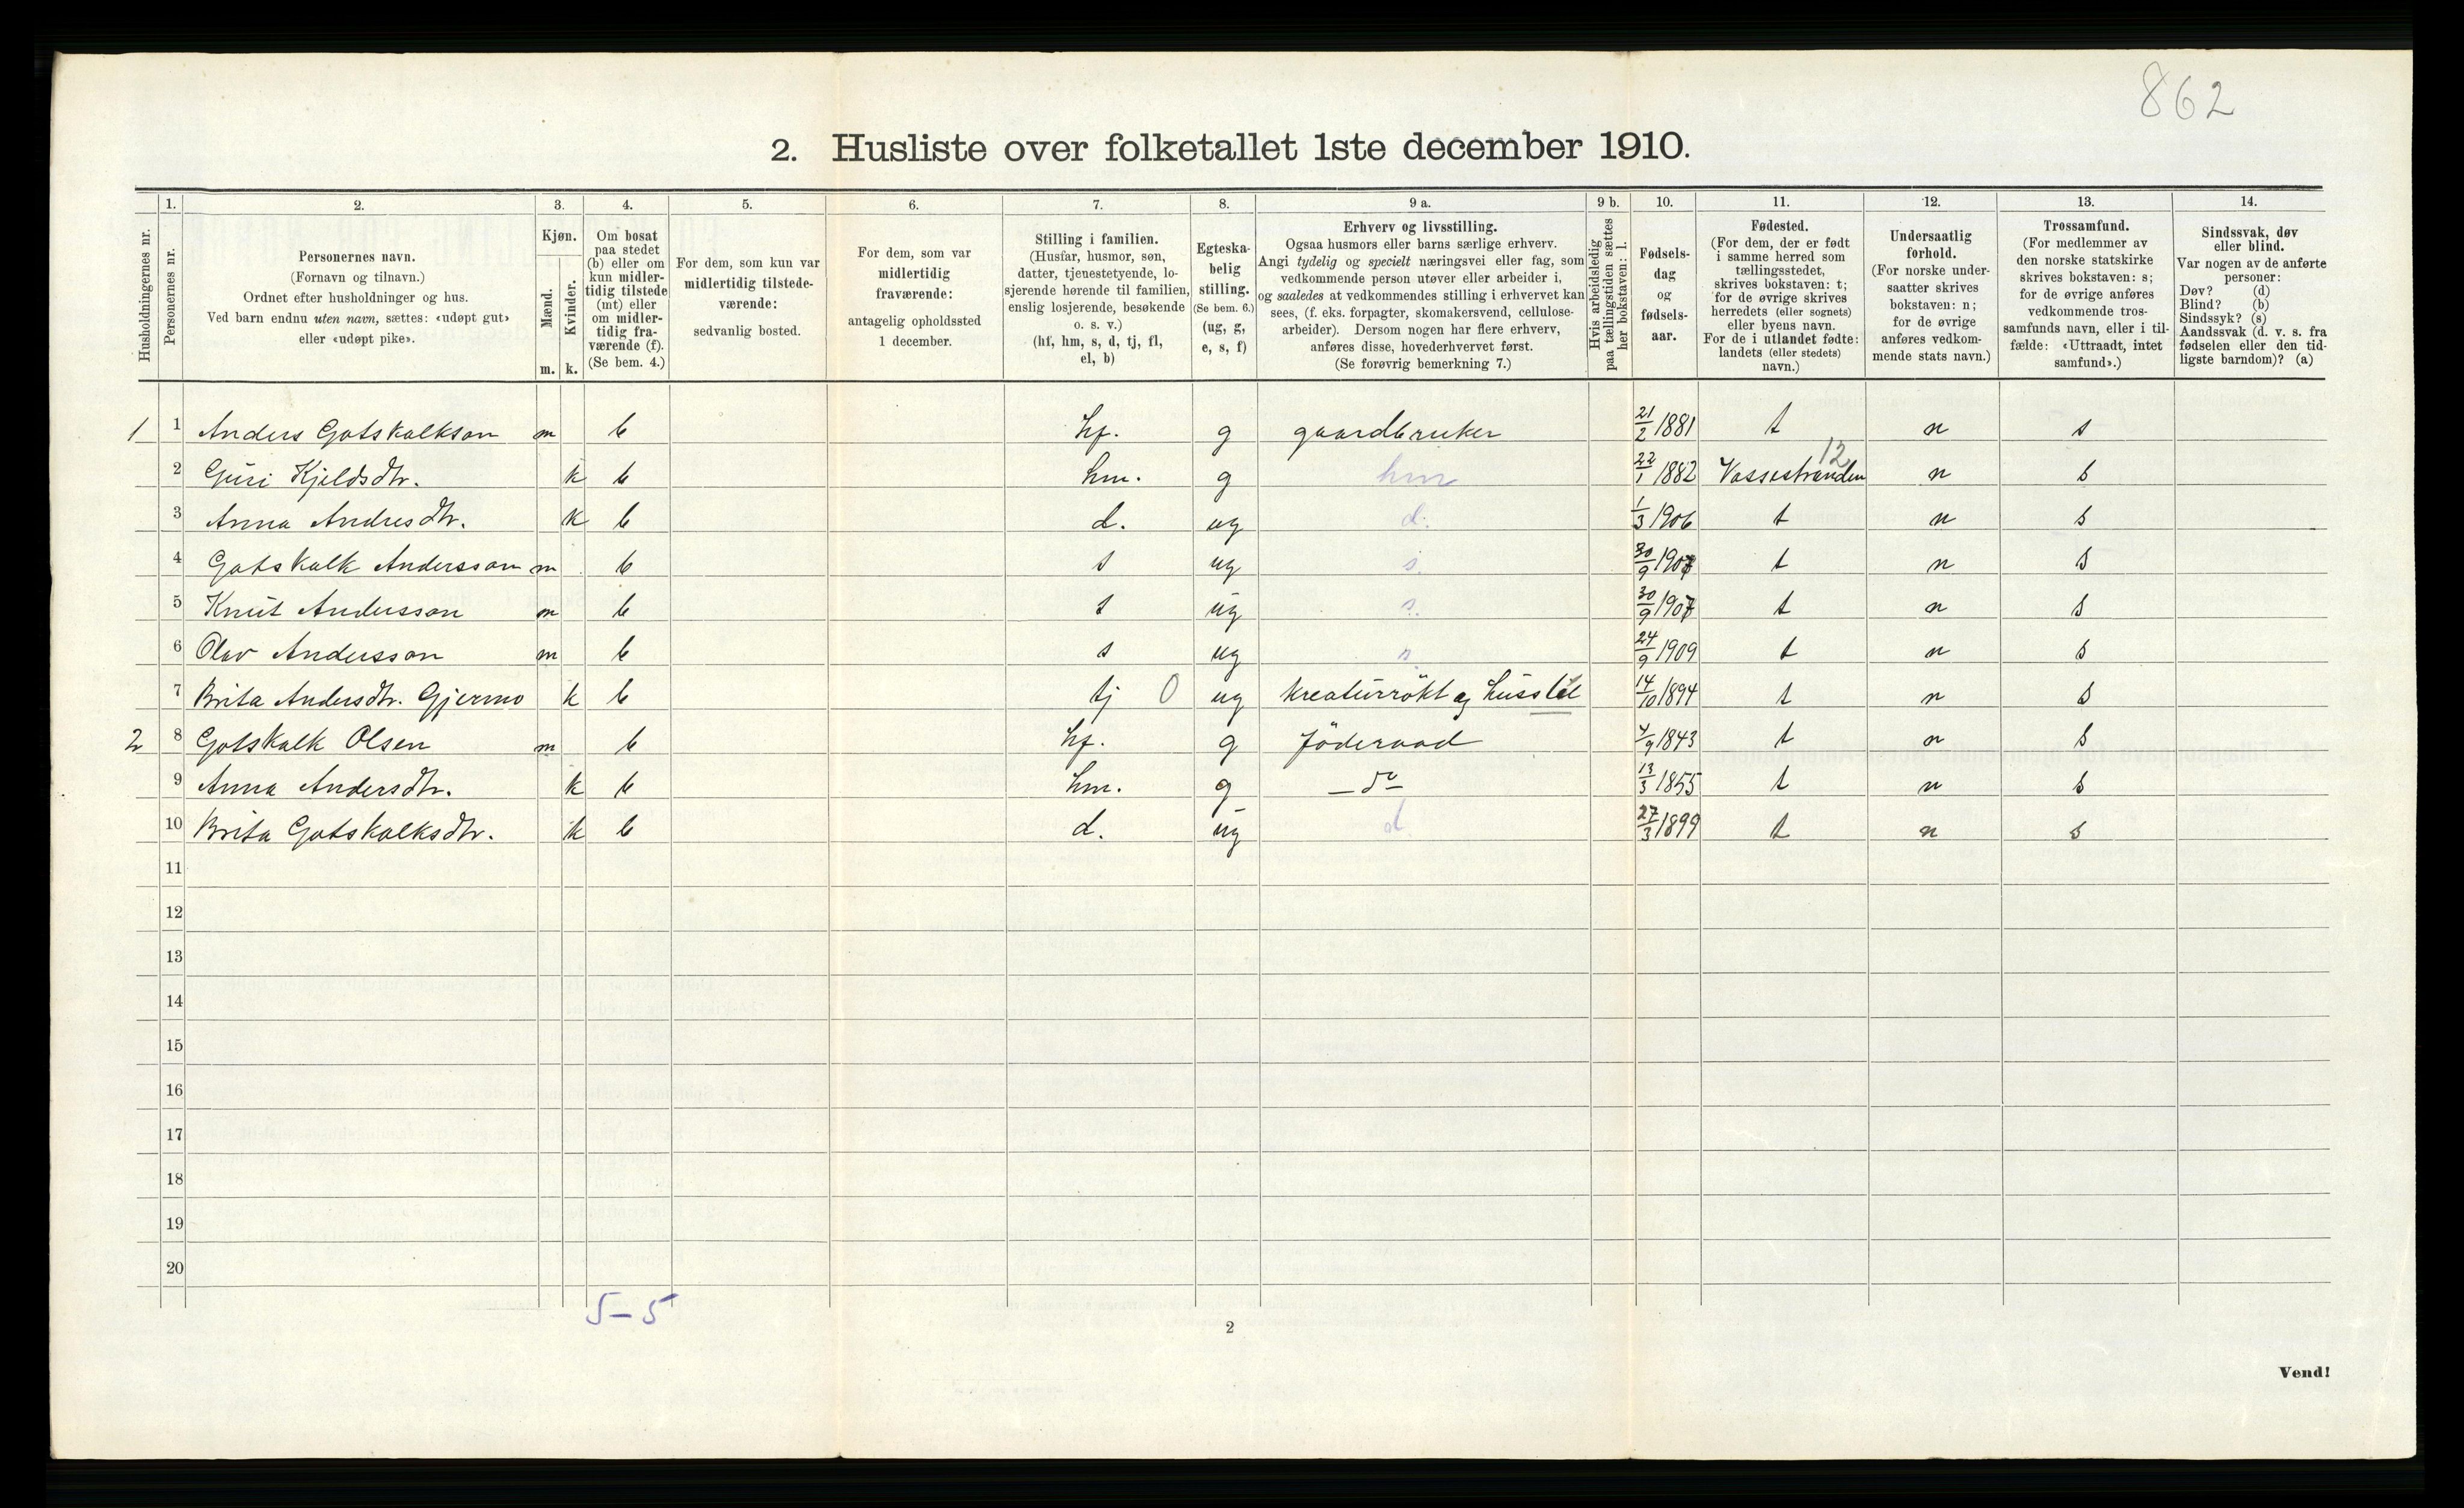 862
2. Husliste over folketallet 1ste december 1910.
Husholdningernes nr.
1. 2. 3. 4. 5. 6. 7. 8. 9 a. 9 b. 10. 11. 12. 13. 14.
Personernes nr.
Personernes navn.
(Fornavn og tilnavn.)
Ordnet efter husholdninger og hus.
Ved barn endnu uten navn, sættes: «udøpt gut»
eller «udøpt pike».
Kjøn.
Mænd.
Kvinder.
m. k.
Om bosat
paa stedet
(b) eller om
kun midler-
tidig tilstede
(mt) eller
om midler-
tidig fra-
værende (f).
(Se bem. 4.)
For dem, som kun var
midlertidig tilstede-
værende:
sedvanlig bosted.
For dem, som var
midlertidig
fraværende:
antagelig opholdssted
1 december.
Stilling i familien.
(Husfar, husmor, søn,
datter, tjenestetyende, lo-
sjerende hørende til familien,
enslig losjerende, besøkende
o. s. v.)
(hf, hm, s, d, tj, fl,
el, b)
Egteska-
belig
stilling.
(Se bem. 6.)
(ug, g,
e, s, f)
Erhverv og livsstilling.
Ogsaa husmors eller barns særlige erhverv.
Angi tydelig og specielt næringsvei eller fag, som
vedkommende person utøver eller arbeider i,
og saaledes at vedkommendes stilling i erhvervet kan
sees, (f. eks. forpagter, skomakersvend, cellulose-
arbeider). Dersom nogen har flere erhverv,
anføres disse, hovederhvervet først.
(Se forøvrig bemerkning 7.)
Hvis arbeidsledig
paa tællingstiden sættes
her bokstaven: l.
Fødsels-
dag
og
fødsels-
aar.
Fødested.
(For dem, der er født
i samme herred som
tællingsstedet,
skrives bokstaven: t;
for de øvrige skrives
herredets (eller sognets)
eller byens navn.
For de i utlandet fødte:
landets (eller stedets)
navn.)
Undersaatlig
forhold.
(For norske under-
saatter skrives
bokstaven: n;
for de øvrige
anføres vedkom-
mende stats navn.)
Trossamfund.
(For medlemmer av
den norske statskirke
skrives bokstaven: s;
for de øvrige anføres
vedkommende tros-
samfunds navn, eller i til-
fælde: «Uttraadt, intet
samfund».)
Sindssvak, døv
eller blind.
Var nogen av de anførte
personer:
Døv? (d)
Blind? (b)
Sindssyk? (s)
Aandssvak (d. v. s. fra
fødselen eller den tid-
ligste barndom)? (a)
1 1 Anders Gotskalkson m b hf. g gaardbruker 21/2 1881 t n s
12
2 Guri Kjeldsdtr. k b hm. g hm 22/1 1882 Vossestranden n s
3 Anna Andresdtr. k b d. ug d. 1/3 1906 t n s
4 Gotskalk Andersson m b s ug s. 30/9 1907 t n s
5 Knut Andersson m b s ug s. 30/9 1907 t n s
6 Olav Andersson m b s ug s. 24/9 1909 t n s
7 Brita Andersdtr. Gjermo k b tj 0 ug kreaturrökt og husstel 14/10 1894 t n s
2 8 Gotskalk Olsen m b hf. g föderaad 4/9 1843 t n s
9 Anna Andersdtr. k b hm. g — do — 13/3 1855 t n s
10 Brita Gotskalksdtr. k b d. ug d. 27/3 1899 t n s
11
12
13
14
15
16
17
18
19
20
5 – 5
2
Vend!